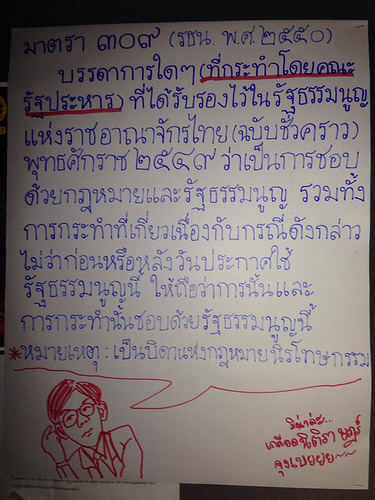 มาตรา ๓๐๙ (รธน. พ.ศ. ๒๕๕๐)
บรรดาการใดๆ (ที่กระทำโดยคณะ
รัฐประหาร) ที่ได้รับรองไว้ในรัฐธรรมนูญ
แห่งราชอาณาจักรไทย (ฉบับชั่วคราว)
พุทธศักราช ๒๕๔๙ ว่าเป็นการชอบ
ด้วยกฎหมายและรัฐธรรมนูญ รวมทั้ง
การกระทำที่เกี่ยวเนื่องกับกรณีดังกล่าว
ไม่ว่าก่อนหรือหลังวันประกาศใช้
รัฐธรรมนูญนี้ ให้ถือว่าการนั้นและ
การกระทำนั้นชอบด้วยรัฐธรรมนูญนี้
*หมายเหตุ : เป็นบิดาแห่งกฎหมายนิรโทษกรรม
เกลียดนิติรา
จุงเบยยย~~